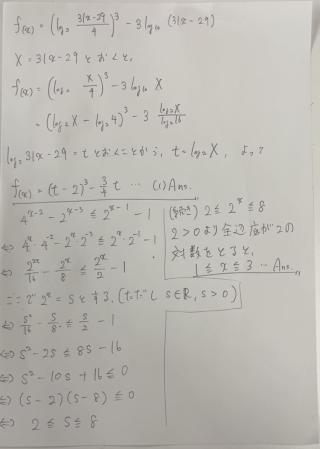 f(x) = (log₂ 3|x-29/4)³ - 3log₁₆ (3|x-29)
X = 3|x-29 とおくと、
f(x) = (log₂ X/4)³ - 3log₁₆ X
= (log₂X - log₂4)³ - 3 log₂X/log₂16
log₂3|x-29 = t とおくことから, t = log₂X , よって
f(x) = (t-2)³ - 3/4 t … (1)Ans.
4^(x-2) - 2^(x-3) ≦ 2^(x-1) - 1
⇔ 4^x・4^-2 - 2^x・2^-3 ≦ 2^x・2^-1 - 1
⇔ 2^2x/16 - 2^x/8 ≦ 2^x/2 - 1
ここで 2^x = s とする. (ただし s∈R, s > 0)
⇔ s²/16 - s/8 ≦ s/2 - 1
⇔ s² - 2s ≦ 8s - 16
⇔ s² - 10s + 16 ≦ 0
⇔ (s-2)(s-8) ≦ 0
⇔ 2 ≦ s ≦ 8
2 ≦ 2^x ≦ 8
2>0より全辺底が2の
対数をとると、
1 ≦ x ≦ 3 … Ans.